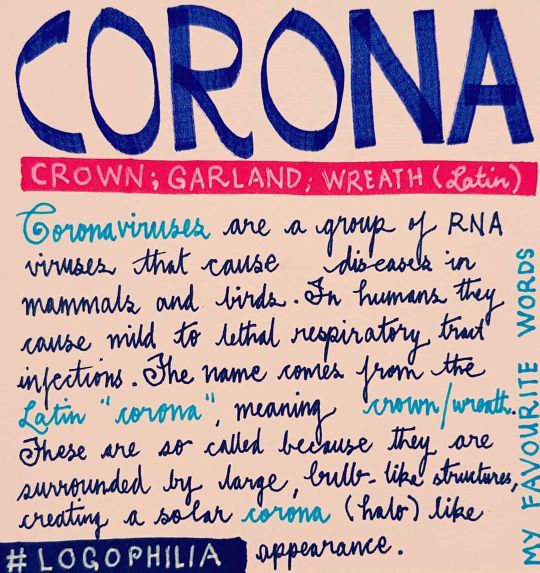 CORONA
CROWN; GARLAND; WREATH (Latin)
Coronaviruses are a group of RNA
viruses that cause diseases in
mammals and birds. In humans they
cause mild to lethal respiratory tract
infections. The name comes from the
Latin "corona", meaning crown/wreath.
These are so called because they are
surrounded by large, bulb-like structures,
creating a solar corona (halo) like
appearance.
#LOGOPHILIA
MY FAVOURITE WORDS